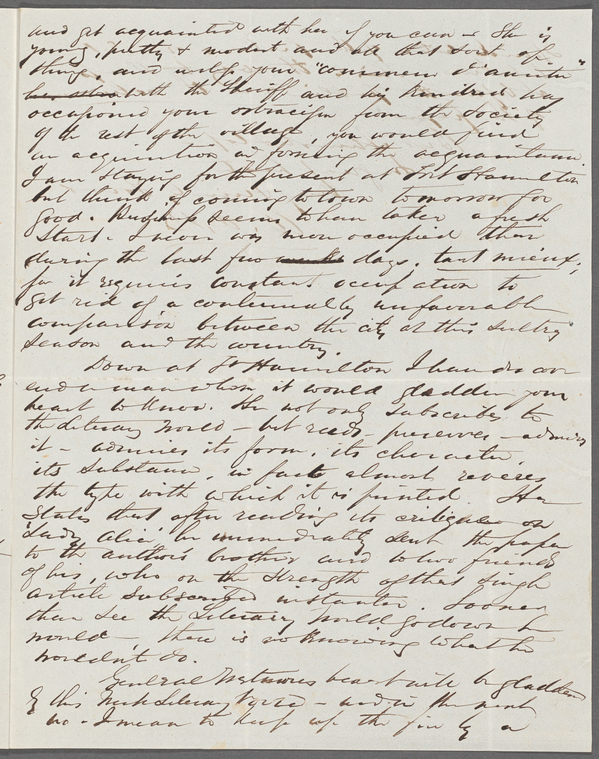 and get acquainted with her if you can - She is
young, pretty & modest and all that sort of
thing, and unless your "commerce d'amitié"
with the Sheriff and his kindred has
occasioned your ostracism from the society
of the rest of the village, you would find
an acquisition in forming the acquaintance.
I am staying for the present at Fort Hamilton
but think of coming to town tomorrow for
good. Business seems to have taken a fresh
start. I never was more occupied than
during the last few days. tant mieux,
for it requires constant occupation to
get rid of a continually unfavorable
comparison between the city at this sultry
season and the country.
Down at Ft Hamilton I have discov
ered a man whom it would gladden your
heart to know. He not only subscribes to
the Literary World - but reads - preserves - admires
it - admires its form, its character,
its substance, in fact almost reveres
the type with which it is printed. He
states that after reading its critique on
"Lady Alice" he immediately sent the paper
to the author's brother and to two friends
of his, who on the strength of that single
article subscribed instanter. Sooner
than see the Literary World go down he
would - there is no knowing what he
wouldn't do.
General Wetmores heart will be gladdened
by this week Literary World - and in the next
no - I mean to keep up the fire by a